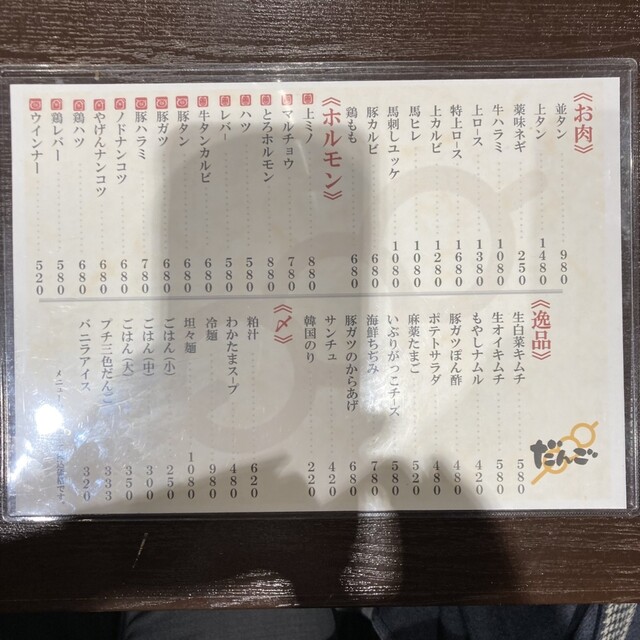 《お肉》
並タン 980
上タン 1480
薬味ネギ 250
牛ハラミ 1080
上ロース 1380
特上ロース 1680
上カルビ 1280
馬ヒレ 1080
馬刺しユッケ 1080
豚カルビ 680
鶏もも 680
《ホルモン》
上ミノ 880
マルチョウ 780
とろホルモン 880
ハツ 580
レバー 580
牛タンカルビ 680
豚タン 680
豚ガツ 680
豚ハラミ 780
ノドナンコツ 680
やげんナンコツ 680
鶏ハツ 680
鶏レバー 580
ウインナー 520
《逸品》
生白菜キムチ 580
生オイキムチ 580
もやしナムル 420
豚ガツぽん酢 480
ポテトサラダ 480
麻薬たまご 520
いぶりがっこチーズ 580
海鮮ちぢみ 780
豚ガツのからあげ 680
サンチュ 420
韓国のり 220
《〆》
粕汁 620
わかたまスープ 480
冷麺 980
坦々麺 1080
ごはん(小) 250
ごはん(中) 300
ごはん(大) 350
プチ三色だんご 333
バニラアイス 320
メニュー です。
だんご